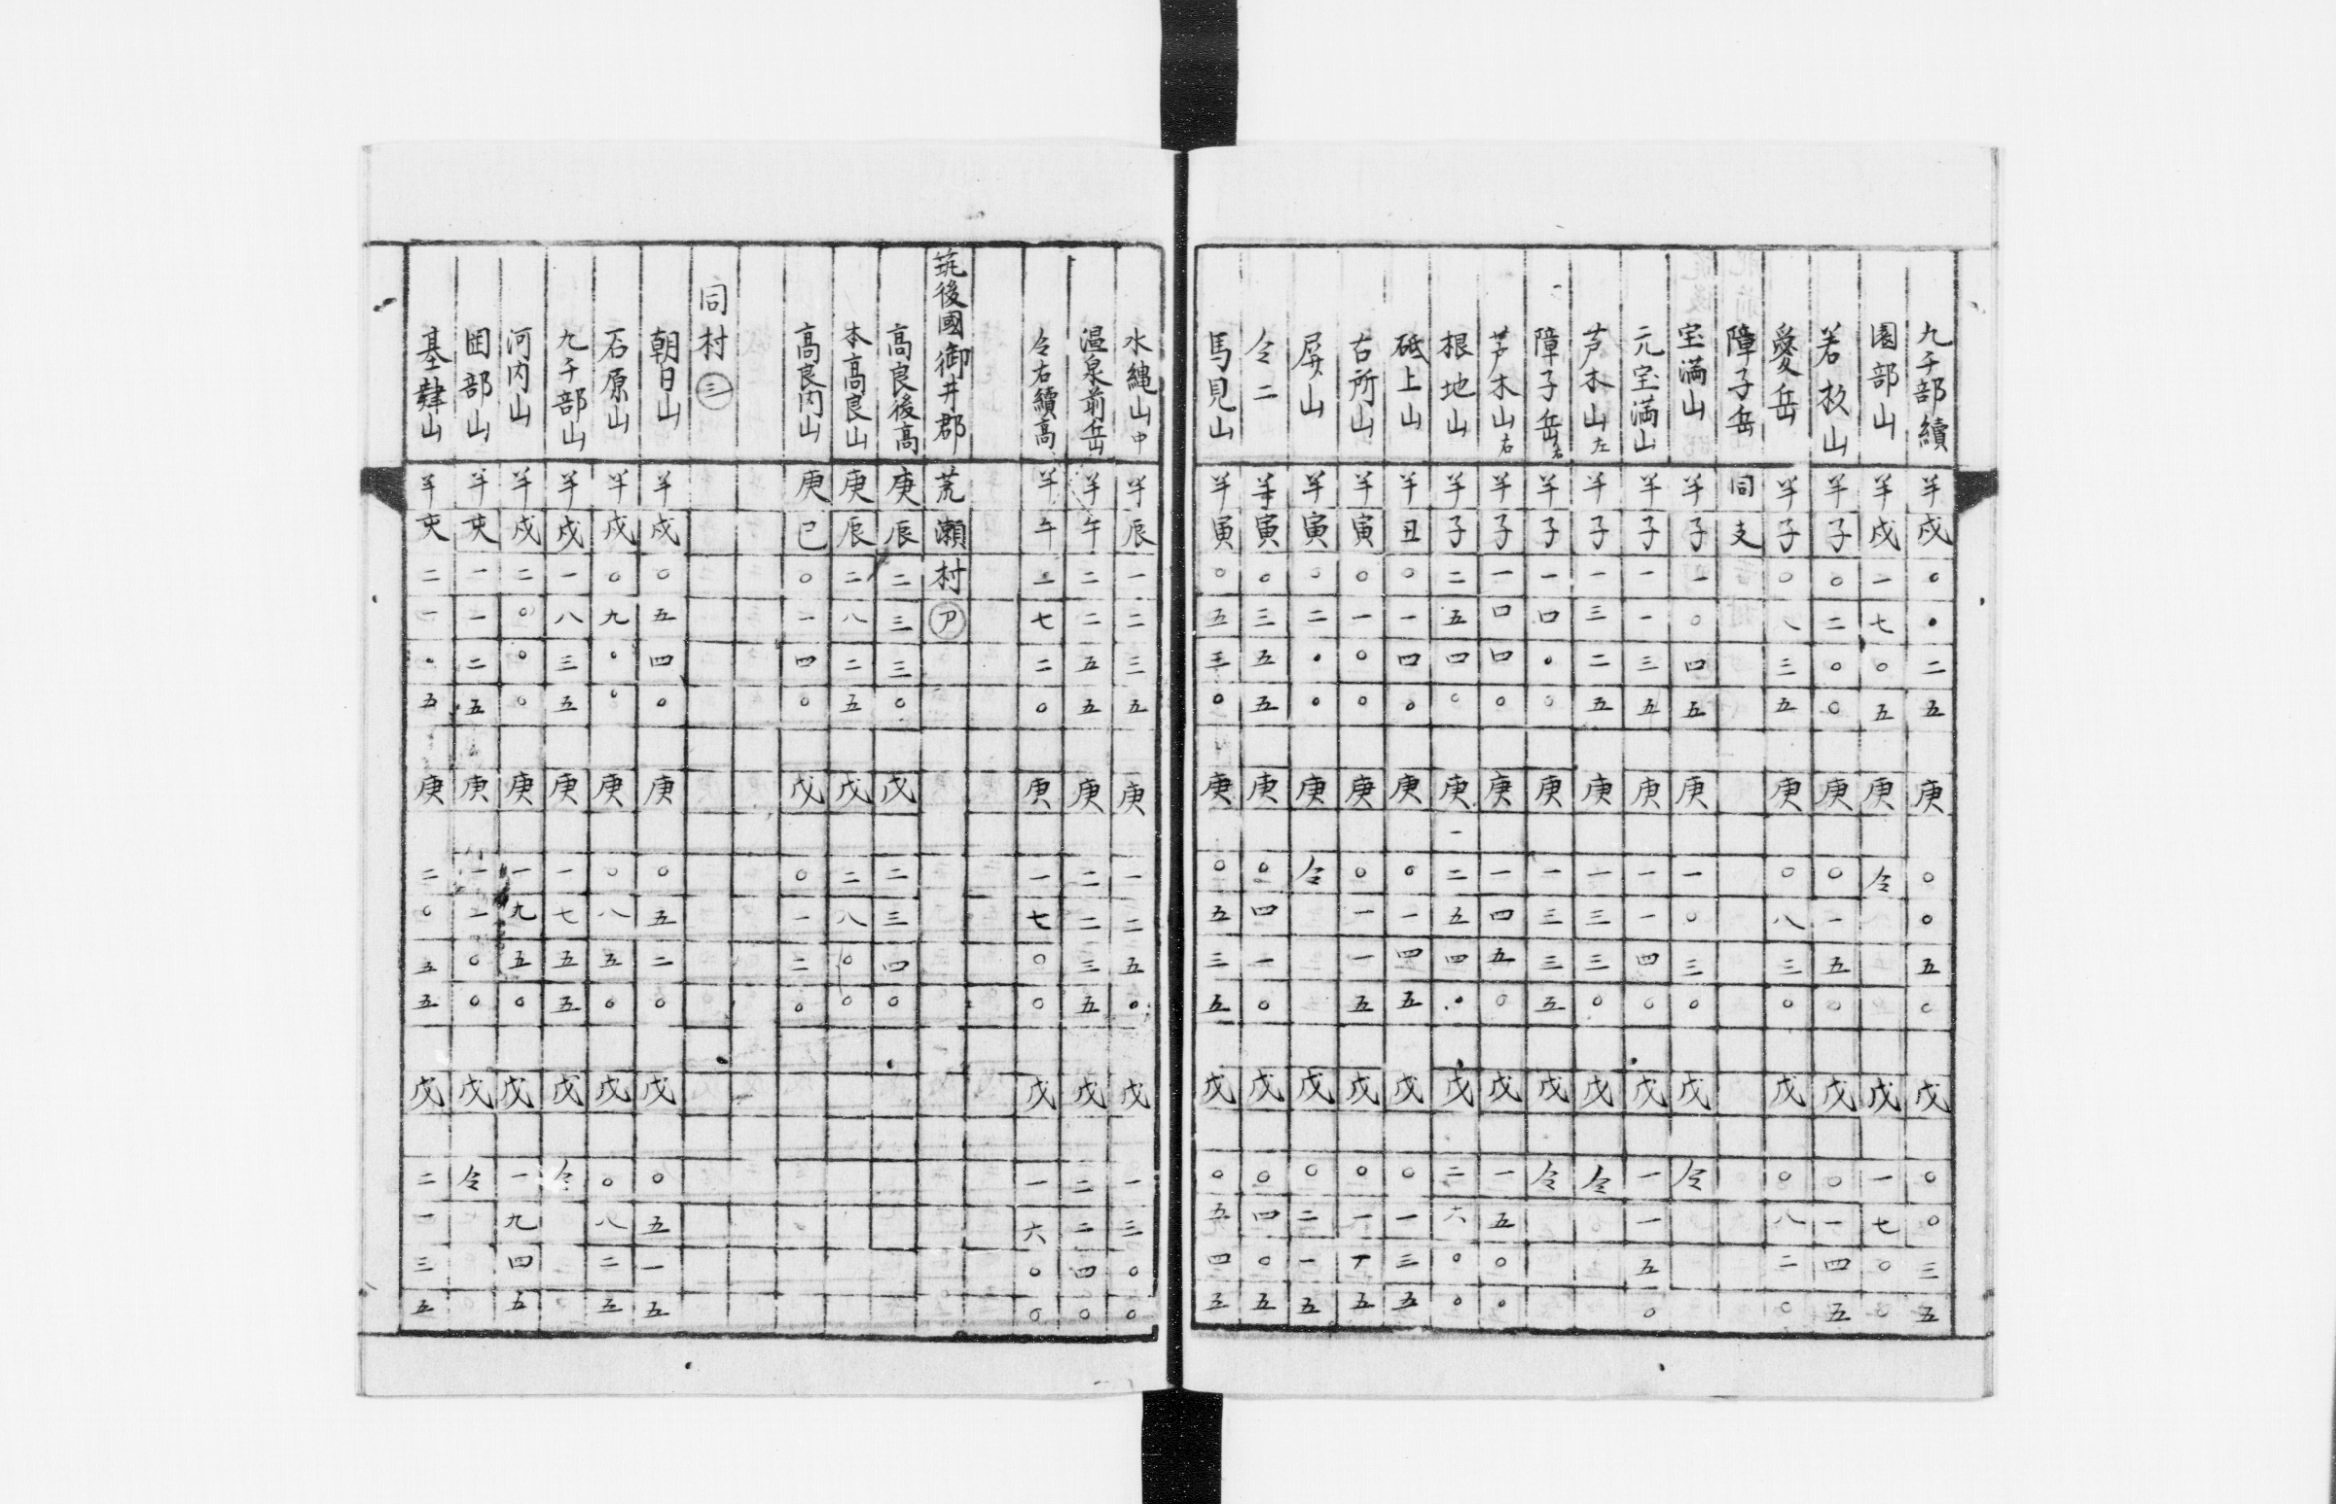 九千部續 半戌 〇〇二五 庚 〇〇五〇 戊 〇〇三五
園部山 半戌 一七〇五 庚 仝 戊 一七〇〇
若杦山 半子 〇二〇〇 庚 〇一五〇 戊 〇一四五
愛岳 半子 〇八三五 庚 〇八三〇 戊 〇八二〇
障子岳 同支
宝満山 半子 一〇四五 庚 一〇三〇 戊 仝
元宝満山 半子 一一三五 庚 一一四〇 戊 一一五〇
芦木山左 半子 一三二五 庚 一三三〇 戊 仝
障子岳右 半子 一四〇〇 庚 一三三五 戊 仝
芦木山右 半子 一四四〇 庚 一四五〇 戊 一五〇〇
根地山 半子 二五四〇 庚 一二五四〇 戊 二六〇〇
砥上山 半丑 〇一四〇 庚 〇一四五 戊 〇一三五
古所山 半寅 〇一〇〇 庚 〇一一五 戊 〇一丁五
屏山 半寅 〇二〇〇 庚 仝 戊 〇二一五
仝二 半寅 〇三五五 庚 〇四一〇 戊 〇四〇五
馬見山 半寅 〇五三〇 庚 〇五三五 戊 〇五四五
水縄山中 半辰 一二三五 庚 一二五〇 戊 一三〇〇
温泉前岳 半午 二二五五 庚 二二三五 戊 二二四〇
仝右續高 半午 一七二〇 庚 一七〇〇 戊 一六〇〇
筑後國御井郡荒瀬村㋐
高良後高 庚辰 二三三〇 戊 二三四〇
本高良山 庚辰 二八二五 戊 二八〇〇
高良内山 庚巳 〇一四〇 戊 〇一二〇
同村㊂
朝日山 半戌 〇五四〇 庚 〇五二〇 戊 〇五一五
石原山 半戌 〇九〇〇 庚 〇八五〇 戊 〇八二五
九千部山 半戌 一八三五 庚 一七五五 戊 仝
河内山 半戌 二〇〇〇 庚 一九五〇 戊 一九四五
囲部山 半亥 一一二五 庚 一一〇〇 戊 仝
基肄山 半亥 二一〇五 庚 二〇五五 戊 二一三五